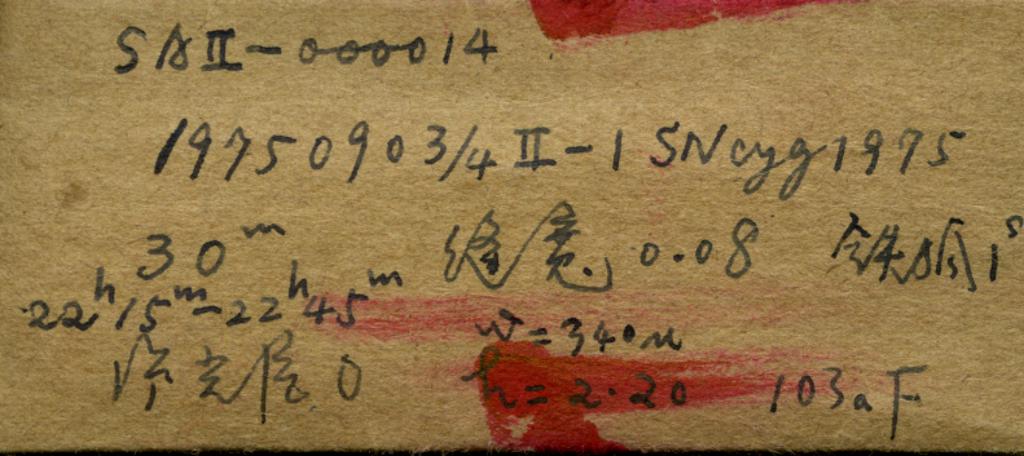 SAII-000014
19750903/4 II-1 SNcyg1975
30ᵐ 缝宽 0.08 铁弧1ˢ
22ʰ15ᵐ-22ʰ45ᵐ
w=340μ
光屑 0 h=2.20 103aF